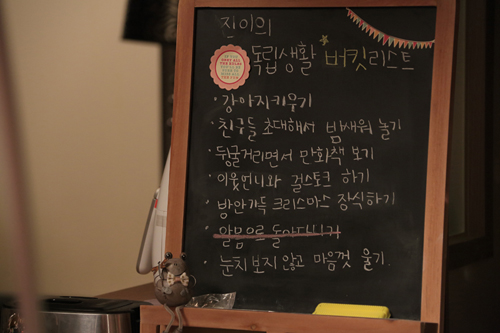 진이의
독립생활 버킷리스트
· 강아지키우기
· 친구들 초대해서 밤새워 놀기
· 뒹굴거리면서 만화책 보기
· 이웃언니와 걸스토크 하기
· 방안가득 크리스마스 장식하기
· 알몸으로 돌아다니기
· 눈치 보지 않고 마음껏 울기.